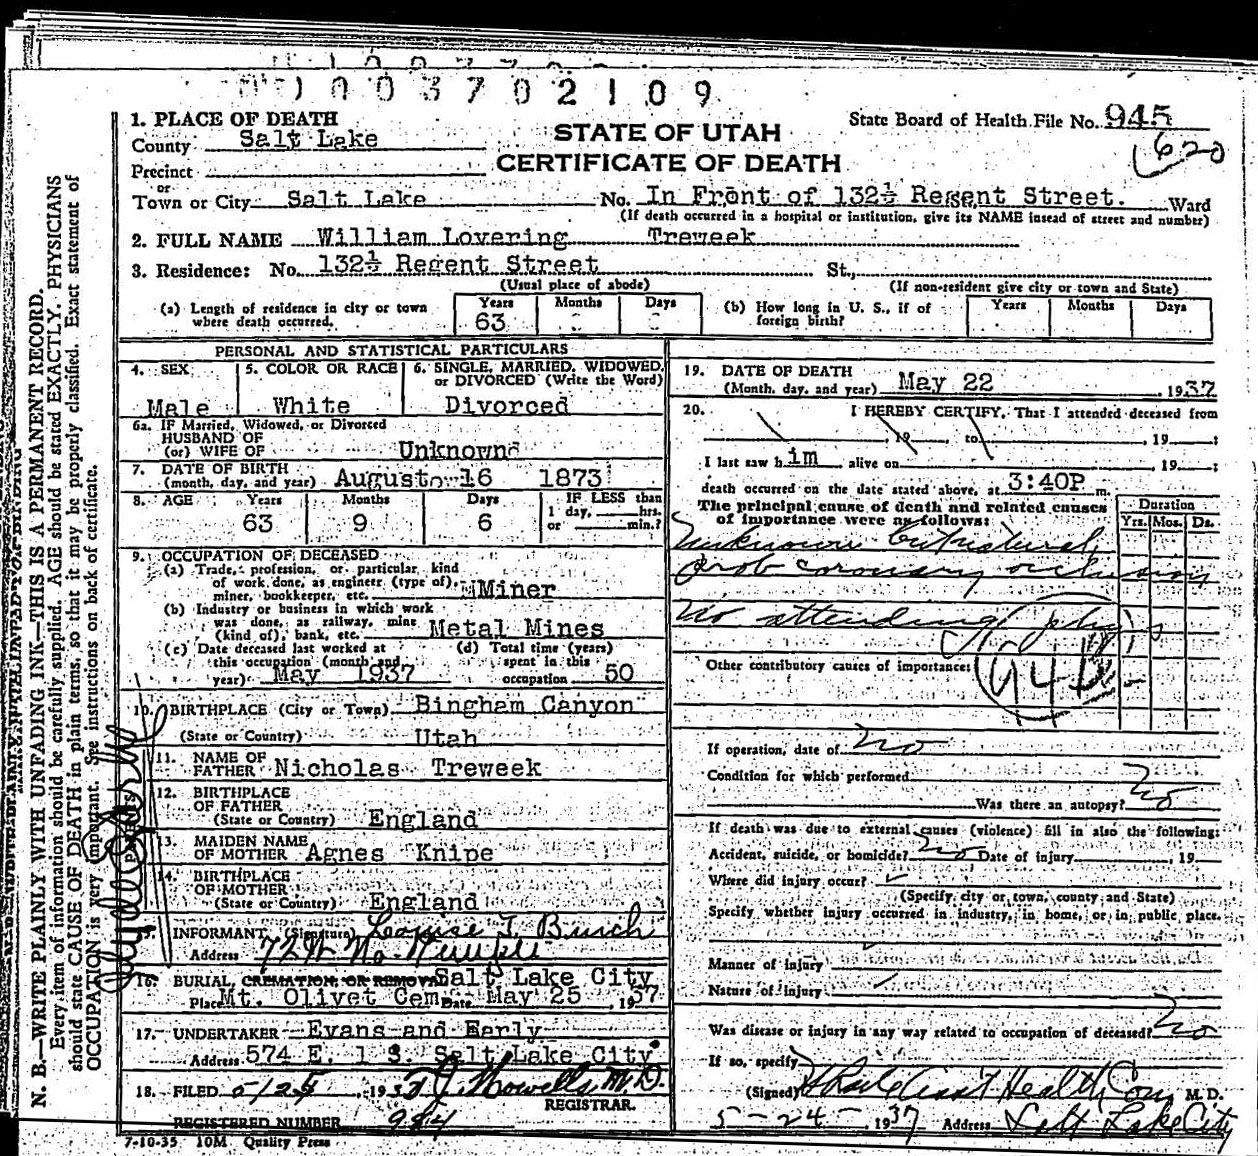 0 1 0 0 3 7 0 2 1 0 9
1. PLACE OF DEATH
County Salt Lake
STATE OF UTAH
CERTIFICATE OF DEATH
State Board of Health File No. 945
620
Precinct
or
Town or City Salt Lake No. In Front of 132½ Regent Street. Ward
(If death occurred in a hospital or institution, give its NAME insead of street and number)
2. FULL NAME William Lovering Treweek
3. Residence: No. 132½ Regent Street St.,
(Usual place of abode) (If non-resident give city or town and State)
(a) Length of residence in city or town where death occurred. Years 63 Months - Days -
(b) How long in U. S., if of foreign birth? Years Months Days
PERSONAL AND STATISTICAL PARTICULARS
4. SEX Male
5. COLOR OR RACE White
6. SINGLE, MARRIED, WIDOWED, or DIVORCED (Write the Word) Divorced
6a. IF Married, Widowed, or Divorced
HUSBAND OF
(or) WIFE OF Unknown
7. DATE OF BIRTH
(month, day, and year) August 16 1873
8. AGE Years 63 Months 9 Days 6 IF LESS than 1 day, hrs. or min.?
9. OCCUPATION OF DECEASED
(a) Trade, profession, or particular, kind
of work done, as engineer (type of),
miner, bookkeeper, etc. Miner
(b) Industry or business in which work
was done, as railway, mine
(kind of), bank, etc. Metal Mines
(c) Date deceased last worked at
this occupation (month and
year) May 1937
(d) Total time (years)
spent in this
occupation 50
10. BIRTHPLACE (City or Town) Bingham Canyon
(State or Country) Utah
PARENTS
11. NAME OF
FATHER Nicholas Treweek
12. BIRTHPLACE
OF FATHER
(State or Country) England
13. MAIDEN NAME
OF MOTHER Agnes Knipe
14. BIRTHPLACE
OF MOTHER
(State or Country) England
15. INFORMANT (Signature) Louise T. Burch
Address 72 W No. Temple
16. BURIAL, CREMATION, OR REMOVAL Salt Lake City
Place Mt. Olivet Cem. Date May 25 1937
17. UNDERTAKER Evans and Early
Address 574 E. 1 S. Salt Lake City
18. FILED 5/25 1937 Howells M.D.
REGISTRAR.
REGISTERED NUMBER 984
7-10-35 10M Quality Press
19. DATE OF DEATH
(Month, day, and year) May 22 1937
20. I HEREBY CERTIFY, That I attended deceased from
, 19 , to , 19 ;
I last saw him alive on , 19 ;
death occurred on the date stated above, at 3:40P m.
The principal cause of death and related causes
of importance were as follows:
Duration
Yrs. Mos. Ds.
Unknown but natural,
prob coronary occlusion
No attending phys
Other contributory causes of importance:
94b
If operation, date of no
Condition for which performed
Was there an autopsy? no
If death was due to external causes (violence) fill in also the following:
Accident, suicide, or homicide? no Date of injury , 19
Where did injury occur?
(Specify city or town, county and State)
Specify whether injury occurred in industry, in home, or in public place.
Manner of injury
Nature of injury
Was disease or injury in any way related to occupation of deceased? no
If so, specify
(Signed) Asst Health Com M. D.
5-24-1937 Address Salt Lake City
N. B.—WRITE PLAINLY WITH UNFADING INK—THIS IS A PERMANENT RECORD.
Every item of information should be carefully supplied. AGE should be stated EXACTLY. PHYSICIANS
should state CAUSE OF DEATH in plain terms, so that it may be properly classified. Exact statement of
OCCUPATION is very important. See instructions on back of certificate.